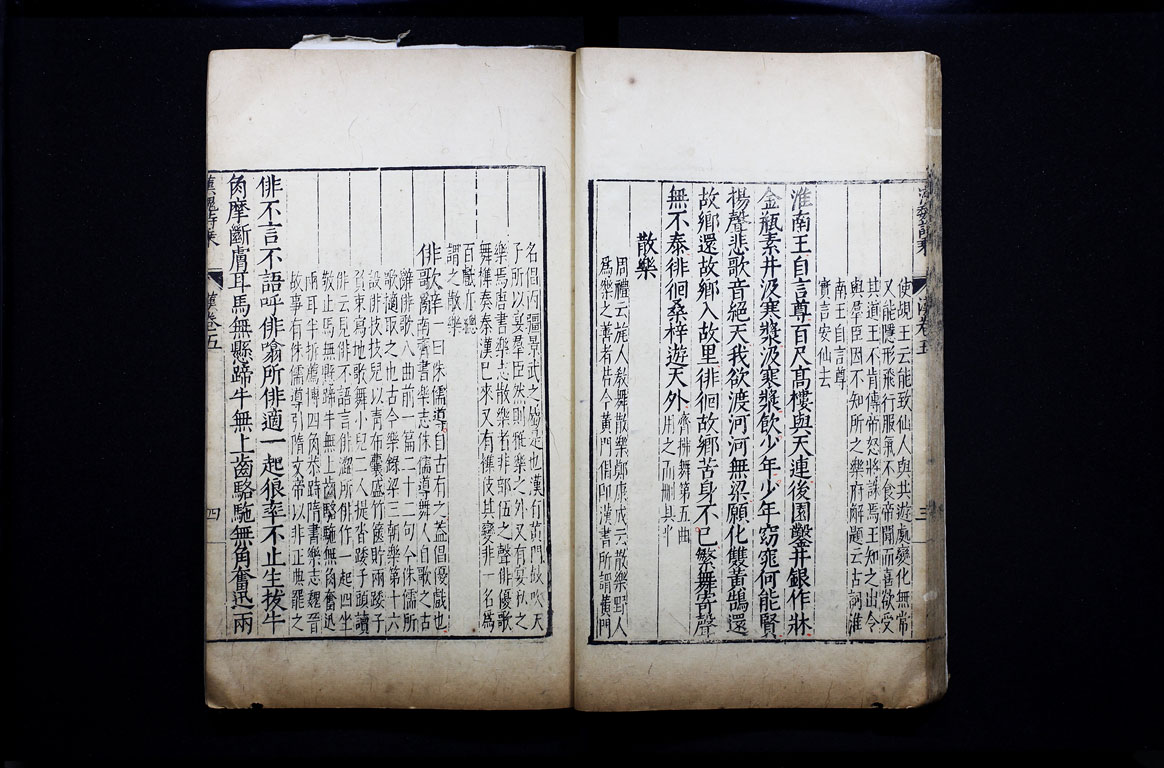 漢魏詩乘 漢卷五 三
使覘王云能致仙人與共遊處變化無常
又能隱形飛行服氣不食帝聞而喜欲受
其道王不肯傳帝怒將誅焉王知之出令
與羣臣因不知所之樂府解題云古詞淮
南王自言尊
實言安仙去
淮南王自言尊百尺高樓與天連後園鑿井銀作牀
金瓶素井汲寒漿汲寒漿飲少年少年窈窕何能賢
揚聲悲歌音絕天我欲渡河河無梁願化雙黃鵠還
故鄉還故鄉入故里徘徊故鄉苦身不已繁舞寄聲
無不泰徘徊桑梓遊天外 齊拂舞第五曲
用之而刪其半
散樂
周禮云旄人敎舞散樂鄭康成云散樂野人
爲樂之善者若今黃門倡即漢書所謂黃門
名倡丙彊景武之屬是也漢有黃門鼓吹天
子所以宴羣臣然則雅樂之外又有宴私之
樂焉唐書樂志散樂者非部伍之聲俳優歌
舞雜奏秦漢已來又有雜伎其變非一名爲
百戲亦總
謂之散樂
俳歌辭 一曰侏儒導自古有之蓋倡優戲也
南齊書樂志侏儒導舞人自歌之古
辭俳歌八曲前一篇二十二句今侏儒所
歌摘取之也古今樂錄梁三朝樂第十六
設俳技技兒以靑布囊盛竹篋貯兩踒子
負束寫地歌舞小兒二人提沓踒子頭讀
俳云見俳不語言俳澀所俳作一起四坐
敬止馬無懸蹄牛無上齒駱駞無角奮迅
兩耳半拆薦博四角恭跱隋書樂志魏晉
故事有侏儒導引隋文帝以非正典罷之
俳不言不語呼俳噏所俳適一起狼率不止生拔牛
角摩斷膚耳馬無懸蹄牛無上齒駱駞無角奮迅兩
漢魏詩乘 漢卷五 四